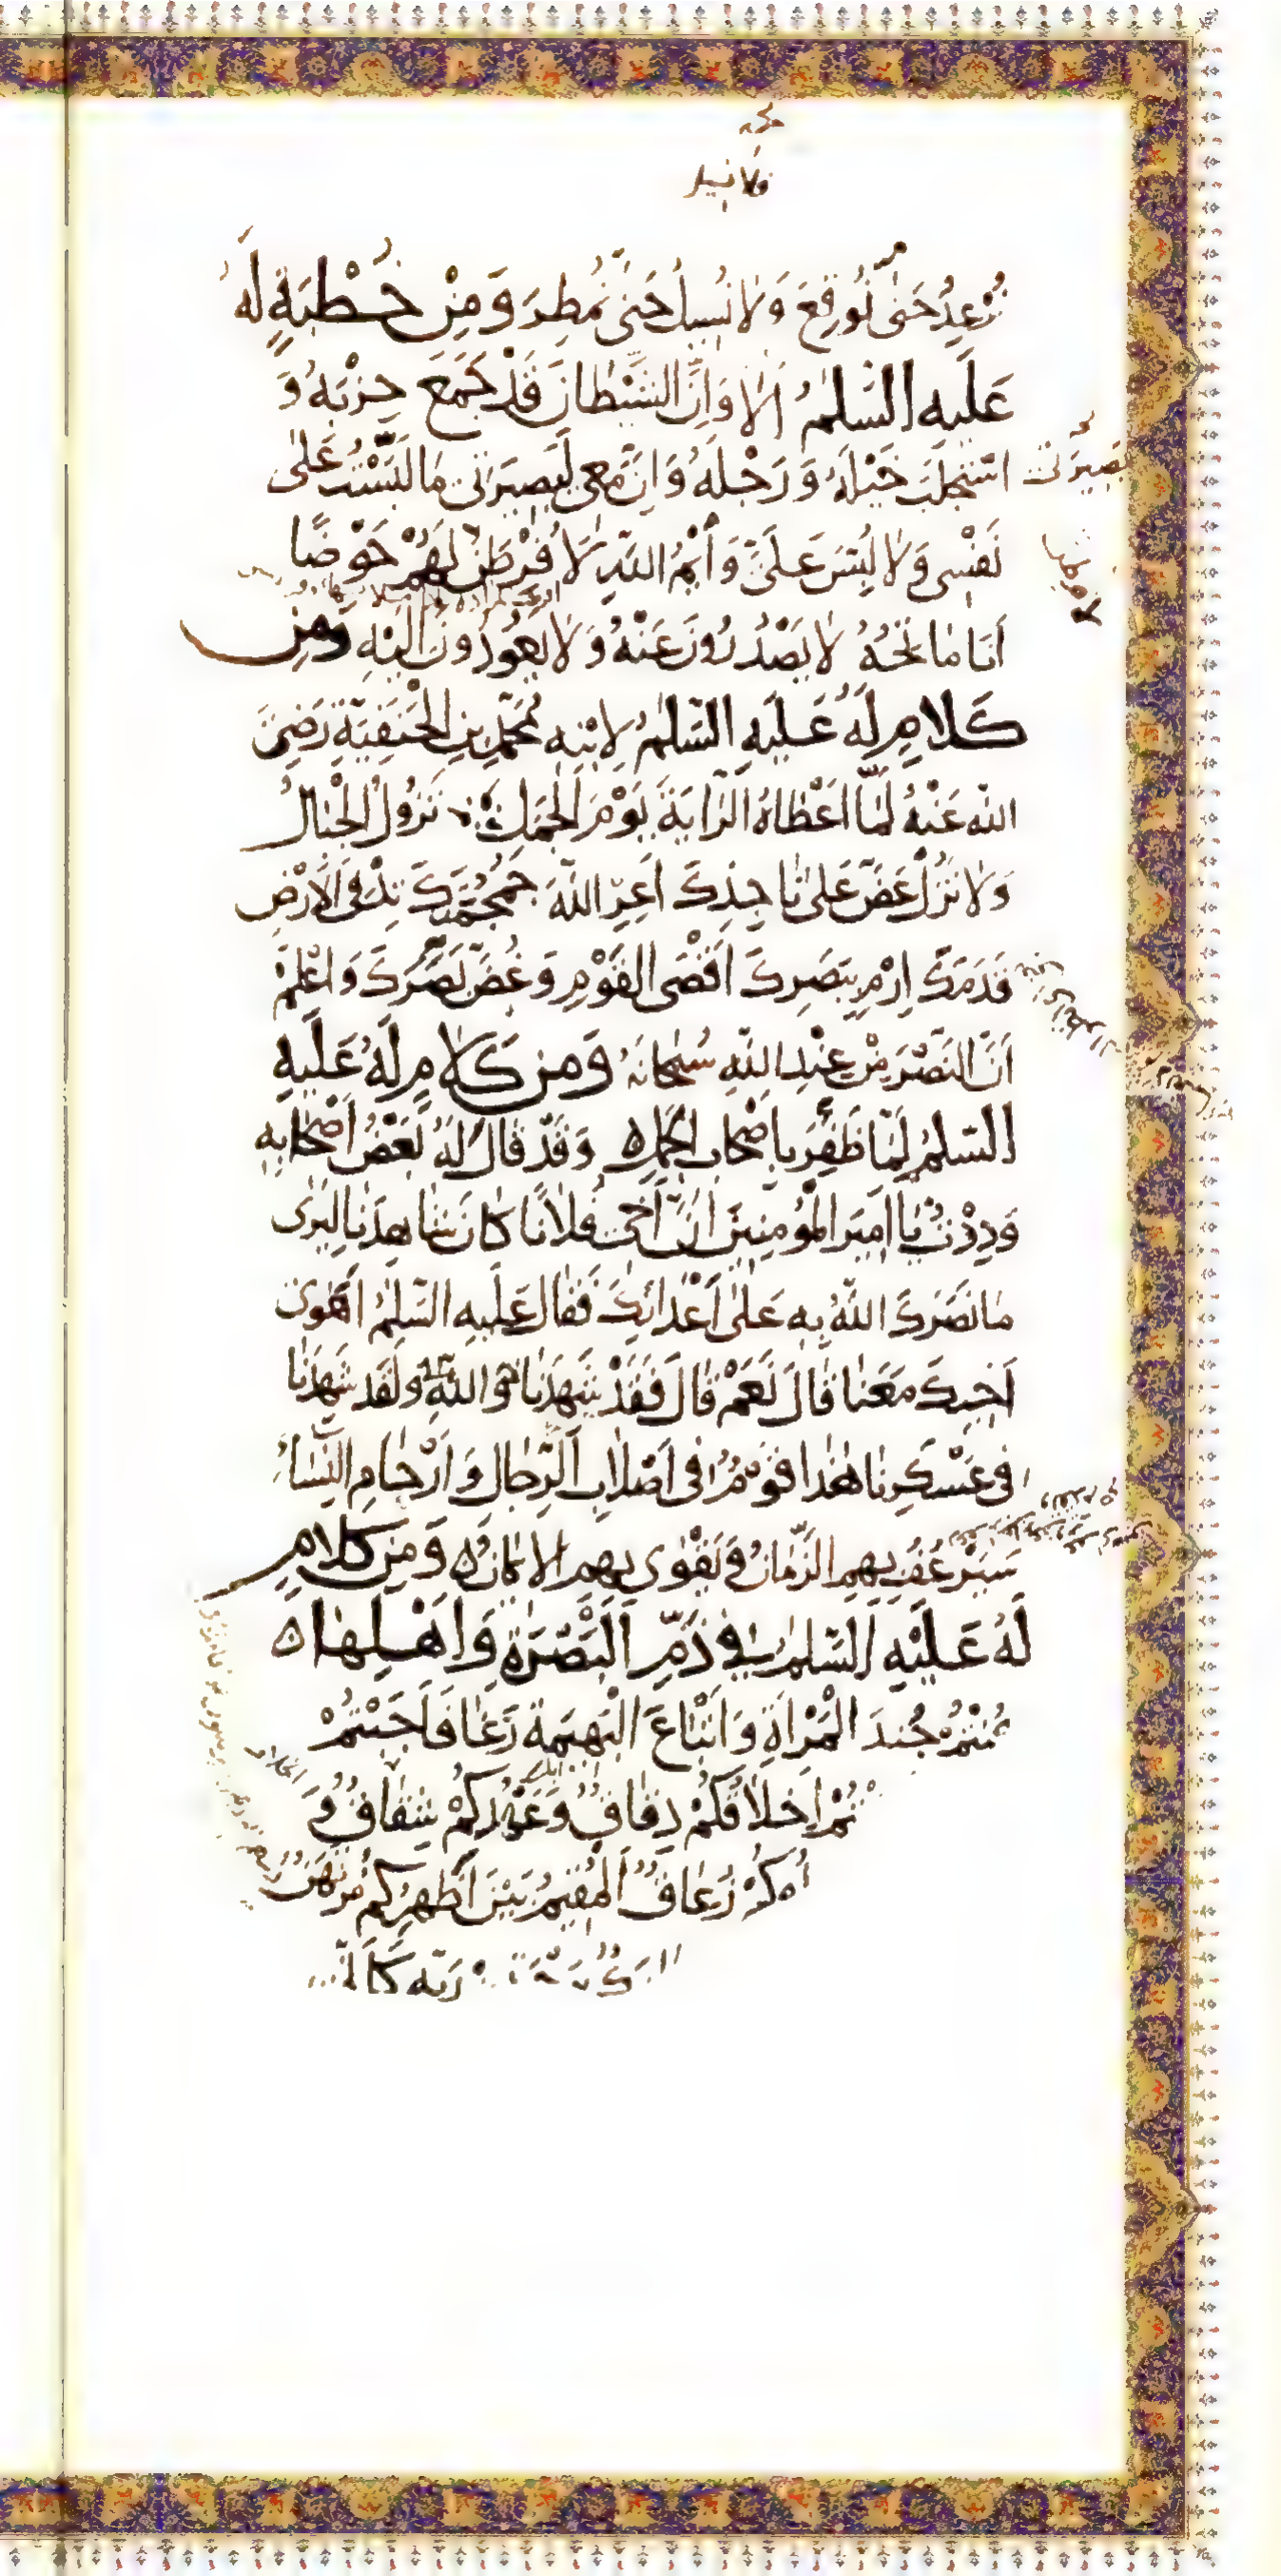 نُرْعِدُ حَتّىٰ نُوقِعَ وَلا نُسِيلُ حَتّى نُمْطِرَ وَمِنْ خُطْبَةٍ لَهُ
عَلَيهِ السَّلٰمُ اَلا وَاِنَّ الشَّيْطانَ قَدْ جَمَعَ حِزْبَهُ وَ
اسْتَجْلَبَ خَيْلَهُ وَرَجْلَهُ وَاِنَّ مَعى لَبَصِيرَتى مَا لَبَّسْتُ عَلىٰ
نَفْسِى وَلا لُبِّسَ عَلَىَّ وَاَيْمُ اللّٰهِ لَاُفْرِطَنَّ لَهُمْ حَوْضًا
اَنَا مٰاتِحُهُ لا يَصْدُرُونَ عَنْهُ وَلا يَعُودُونَ اِلَيْهِ وَمِنْ
كَلامٍ لَهُ عَلَيهِ السَّلٰمُ لِابْنِهِ مُحَمَّدِ بنِ الْحَنَفِيَّةِ رَضِىَ
اللّٰه عَنْهُ لَمّا اَعْطاهُ الرّايَةَ يَوْمَ الْجَمَلِ تَزُولُ الْجِبالُ
وَلا تَزُلْ عَضَّ عَلىٰ ناجِذِكَ اَعِرِ اللّٰهَ جُمْجُمَتَكَ تِدْ فِى الْاَرْضِ
قَدَمَكَ اِرْمِ بِبَصَرِكَ اَقْصَى الْقَوْمِ وَغُضَّ بَصَرَكَ وَاعْلَمْ
اَنَّ النَّصْرَ مِنْ عِنْدِ اللّٰهِ سُبْحانَهُ وَمِن كَلامٍ لَهُ عَلَيهِ
السَّلٰمُ لَمّا ظَفِرَ بِاَصْحابِ الْجَمَلِ وَقَدْ قالَ لَهُ بَعْضُ اَصْحابِهِ
وَدِدْتُ يا اَمِيرَ الْمُؤْمِنِينَ اَنَّ اَخى فُلانًا كانَ شاهِدَنا لِيَرىٰ
مٰا نَصَرَكَ اللّٰهُ بِهِ عَلىٰ اَعْدائِكَ فَقالَ عَلَيهِ السَّلٰمُ اَهَوىٰ
اَخِيكَ مَعَنا قالَ نَعَمْ قالَ فَقَدْ شَهِدَنا وَاللّٰهِ وَلَقَد شَهِدَنا
فى عَسْكَرِنا هٰذا قَوْمٌ فى اَصْلابِ الرِّجالِ وَاَرْحامِ النِّساءِ
سَيَرْعُفُ بِهِمِ الزَّمانُ وَيَقْوىٰ بِهِمِ الْاِيمانُ وَمِن كَلامٍ
لَهُ عَلَيْهِ السَّلٰمُ فى ذَمِّ الْبَصْرَةِ وَاَهْلِها
كُنْتُمْ جُندَ الْمَرْاَةِ وَاَتْباعَ الْبَهِيمَةِ رَغا فَاَجَبْتُمْ
اَخلاقُكُمْ دِقاقٌ وَعَهْدُكُمْ شِقاقٌ وَ
زُعاقٌ الْمُقِيمُ بَيْنَ اَظْهُرِكُمْ مُرْتَهَنٌ
رَبِّهِ كَاَنّ